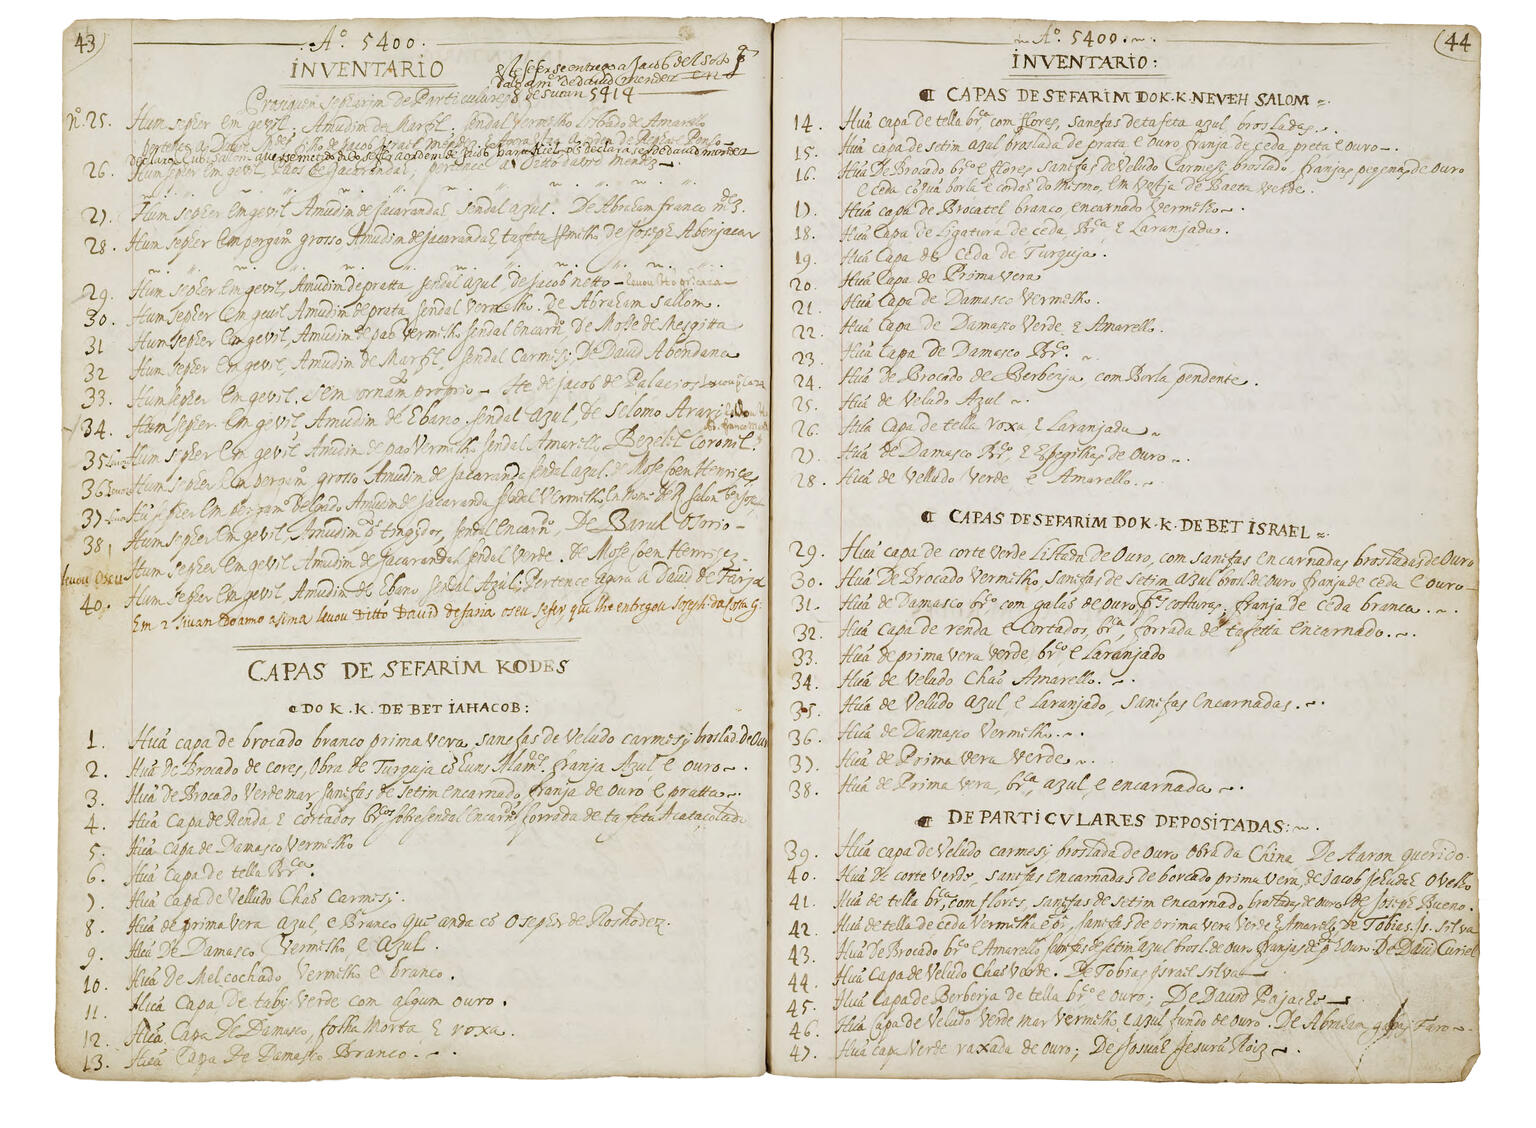 43
Aº. 5400.
INVENTARIO
de sivan 5414
Nº. 25. Hum sepher em gevil; Amudim de Marfil; sendal vermelho
26. Hum sepher em gevil, paos de Jacaranda;
27. Hum sepher em gevil Amudim de Jacaranda E sendal azul. De Abraham franco mdez.
28. Hum sepher em pergamo grosso Amudim de Jacaranda E tafeta vermelho de Joseph Abenjacar
29. Hum sepher em gevil, Amudim de pratta sendal azul de Jacob netto
30. Hum sepher em gevil Amudim de prata, sendal Vermelho. De Abraham sallom.
31 Hum sepher em gevil, Amudim de pao Vermelho sendal encarno, De Mosse de Mesqitta
32 Hum sepher em gevil, Amudim de Marfil, sendal Carmesj; De David Abendana
33. Hum sepher em gevil. sem ornam proprio - He de Jacob de Palacios
34. Hum sepher em gevil Amudim de Ebano, sendal azul, de Selomo Ararj
35 Hum sepher em gevil Amudim de pao Vermelho sendal Amarello, Bezalel Coronel.
36 Hum sepher em pergamo grosso Amudim de Jacaranda sendal azul. de Mose Coen Henriques
37 Hu sepher em pergamo delgado Amudim de Jacaranda sendal Vermelho,
38 Hum sepher em gevil, Amudim sendal encarno, De Baruh Osorio -
Hum sepher em gevil Amudim de Jacaranda E sendal Verde. de Mose Coen Henriqez -
levou o seu
40. Hum sepher em gevil Amudim de Ebano sendal Azul; Pertence agora a David de Farja
Em 2 sivan do anno asima levou ditto David de faria o seu sefer, que lhe entregou Joseph da Costa
CAPAS DE SEFARIM KODES
DO K. K. DE BET IAHACOB:
1. Huã capa de brocado branco prima vera sanefas de Veludo carmesj broslad. de Our
2. Huã De Brocado de cores, Obra de Turquja franja Azul e ouro ~.
3. Huã de Brocado Verdemar sanefas de setim encarnado franja de Ouro e pratta ~.
4. Huã Capa de Renda E cortados brcos sobre sendal encarno forrada de tafetá Acatacolada
5. Huã Capa de Damasco Vermelho
6. Huã Capa de tella Brca.
7. Huã Capa de Velludo Chaõ Carmesj:
8 Huã de prima vera azul, e Branco que anda cõ O sepher de Roshodez.
9. Huã De Damasco, Vermelho, e azul.
10. Huã de Melcochado, vermelho e branco.
11. Huã Capa de taby Verde com algum ouro.
12. Huã Capa De Damasco, folha Morta E roxa.
13. Huã Capa de Damasco Branco. ~.
44
Aº. 5400.
INVENTARIO:
CAPAS DE SEFARIM DO K. K. NEVEH SALOM ~.
14. Huã capa de tella brca com flores, sanefas de tafeta azul brosladas ~.
15. Huã capa de setim azul broslada de prata e ouro franja de ceda, preta e ouro ~.
16. Huã De Brocado brco e flores sanefas de veludo Carmesj broslado, franjas peqenas de ouro
e ceda cõ sua borla e cordaõ do mesmo, em vestja de Baeta verde.
17. Huã capa de Brocatel branco, encarnado Vermelho ~.
18. Huã Capa de Ligatura de ceda, Brca E Laranjada.
19. Huã Capa de Ceda de Turquja.
20. Huã Capa de Prima vera
21. Huã Capa de Damasco Vermelho.
22. Huã Capa de Damasco Verde E Amarello.
23. Huã Capa de Damasco Brco. ~
24. Huã de Brocado de Berberja com Borla pendente.
25. Huã de Veludo Azul ~.
26. Huã Capa de tella roxa E Laranjada ~
27. Huã de Damasco Brco, E Espegilhas de Ouro ~.
28. Huã de Velludo Verde e Amarello. ~.
CAPAS DE SEFARIM DO K. K. DE BET ISRAEL ~
29. Huã capa de corte verde Listada de Ouro, com sanefas encarnadas, brosladas de Ouro
30. Huã De Brocado Vermelho, sanefas de setim azul brosl. de Ouro franja de ceda e ouro -
31. Huã de Damasco brco com galaõ de ouro pelas costuras; franja de ceda branca. ~.
32. Huã capa de renda e cortados, brca, forrada de tafetta encarnado. ~.
33. Huã de prima vera verde, brco e Laranjado
34. Huã de Veludo Chaõ Amarello. ~.
35. Huã de Veludo azul e Laranjado, sanefas encarnadas. ~.
36. Huã de Damasco Vermelho ~.
37. Huã de Prima vera Verde ~.
38. Huã de Prima vera, brca, azul, e encarnada ~.
DE PARTICVLARES DEPOSITADAS: ~.
39. Huã capa de Veludo carmesj broslada de ouro Obra da China De Aaron querido.
40. Huã de corte verde, sanefas encarnadas de borcado prima vera, de Jacob Jehudah Ovelho
41. Huã de tella brca, com flores, sanefas de setim encarnado brosladas de ouro de Joseph Bueno.
42. Huã de tella de ceda Vermelha e brca, sanefas de prima vera Verde E Amarelo de Tobias. Js. silva
43. Huã De Brocado brco e Amarello, sanefas de setim azul brosl. de Ouro franjas de pta e Ouro De David Curiel
44 Huã Capa de Veludo Chaõ Verde. De Tobias Jsrael silva
45. Huã Capa de Berberja de tella brco e ouro; De David Pajache
46. Huã Capa de Veludo Verde mar Vermelho, e azul fundo de ouro. De Abraham gabaj Faro ~.
47. Huã capa Verde raxada de ouro; De Josuah Jesurũ Roiz ~.